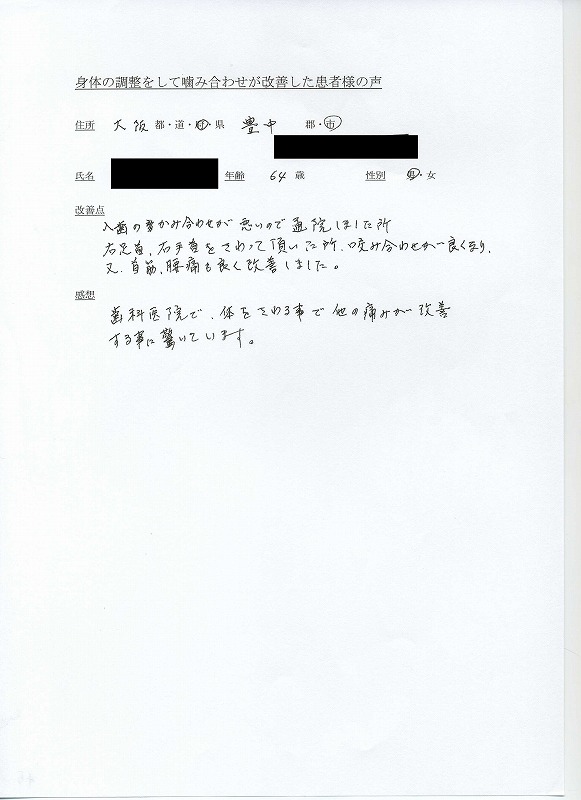 身体の調整をして噛み合わせが改善した患者様の声
住所 大阪 都・道・府・県 豊中 郡・市
氏名 年齢 64 歳 性別 男・女
改善点
入歯の為かみ合わせが悪いので通院しました所
右足首、右手首をさわって頂いた所、咬み合わせが良くなり、
又、首筋、腰痛も良く改善しました。
感想
歯科医院で、体をさわる事で他の痛みが改善
する事に驚いています。